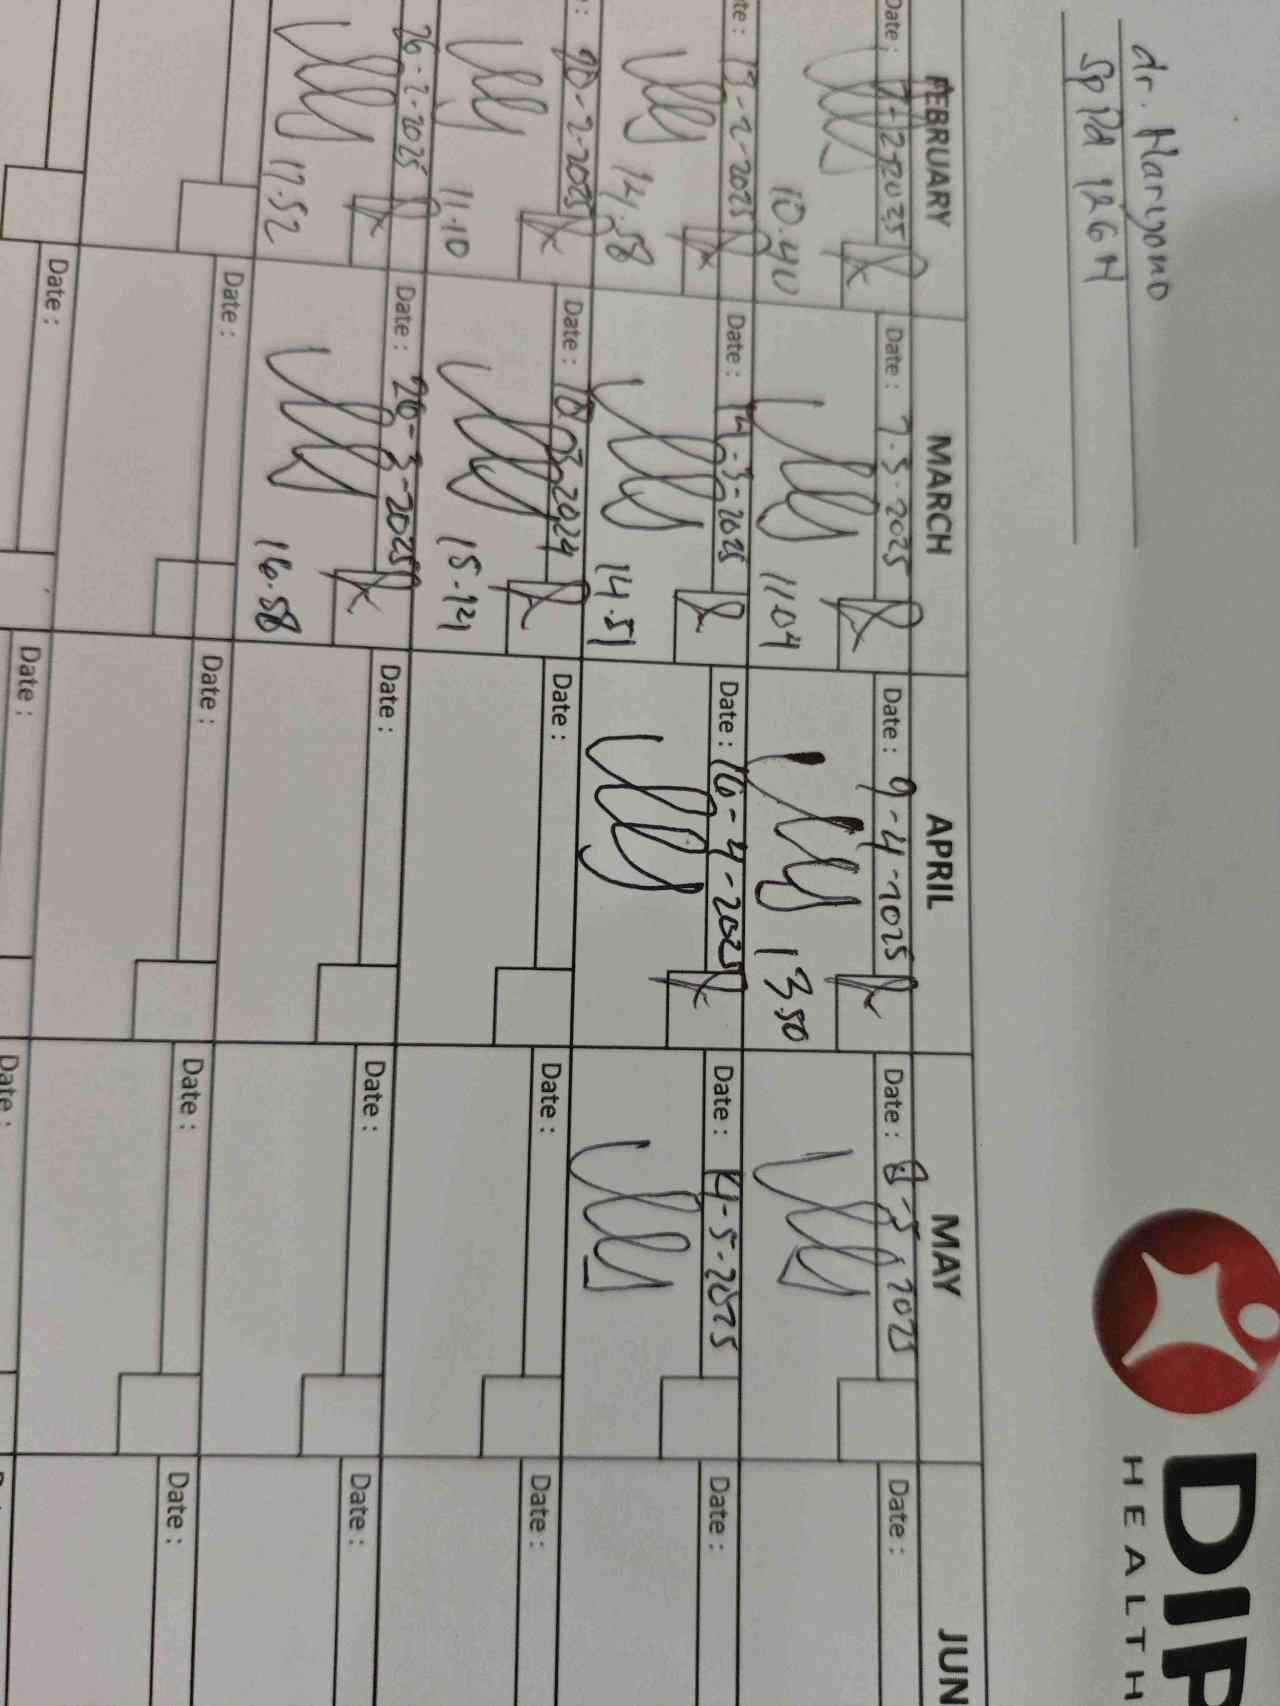 dr. Haryono
SpPd 12GH
DIP
HEALTH
FEBRUARY MARCH APRIL MAY JUN
Date: 7-2-2025 Date: 7.3.2025 Date: 9-4-2025 Date: 8-5-2025 Date:
10.40 11.04 13.50
te: 13-2-2025 Date: 14-3-2025 Date: 16-4-2025 Date: 14-5-2025 Date:
14.58 14.51
: 20-2-2025 Date: Date: Date: Date:
11.10 15.121
26-2-2025 Date: 26-3-2025 Date: Date: Date:
17.52 16.58
Date: Date: Date: Date:
Date: Date: Date: